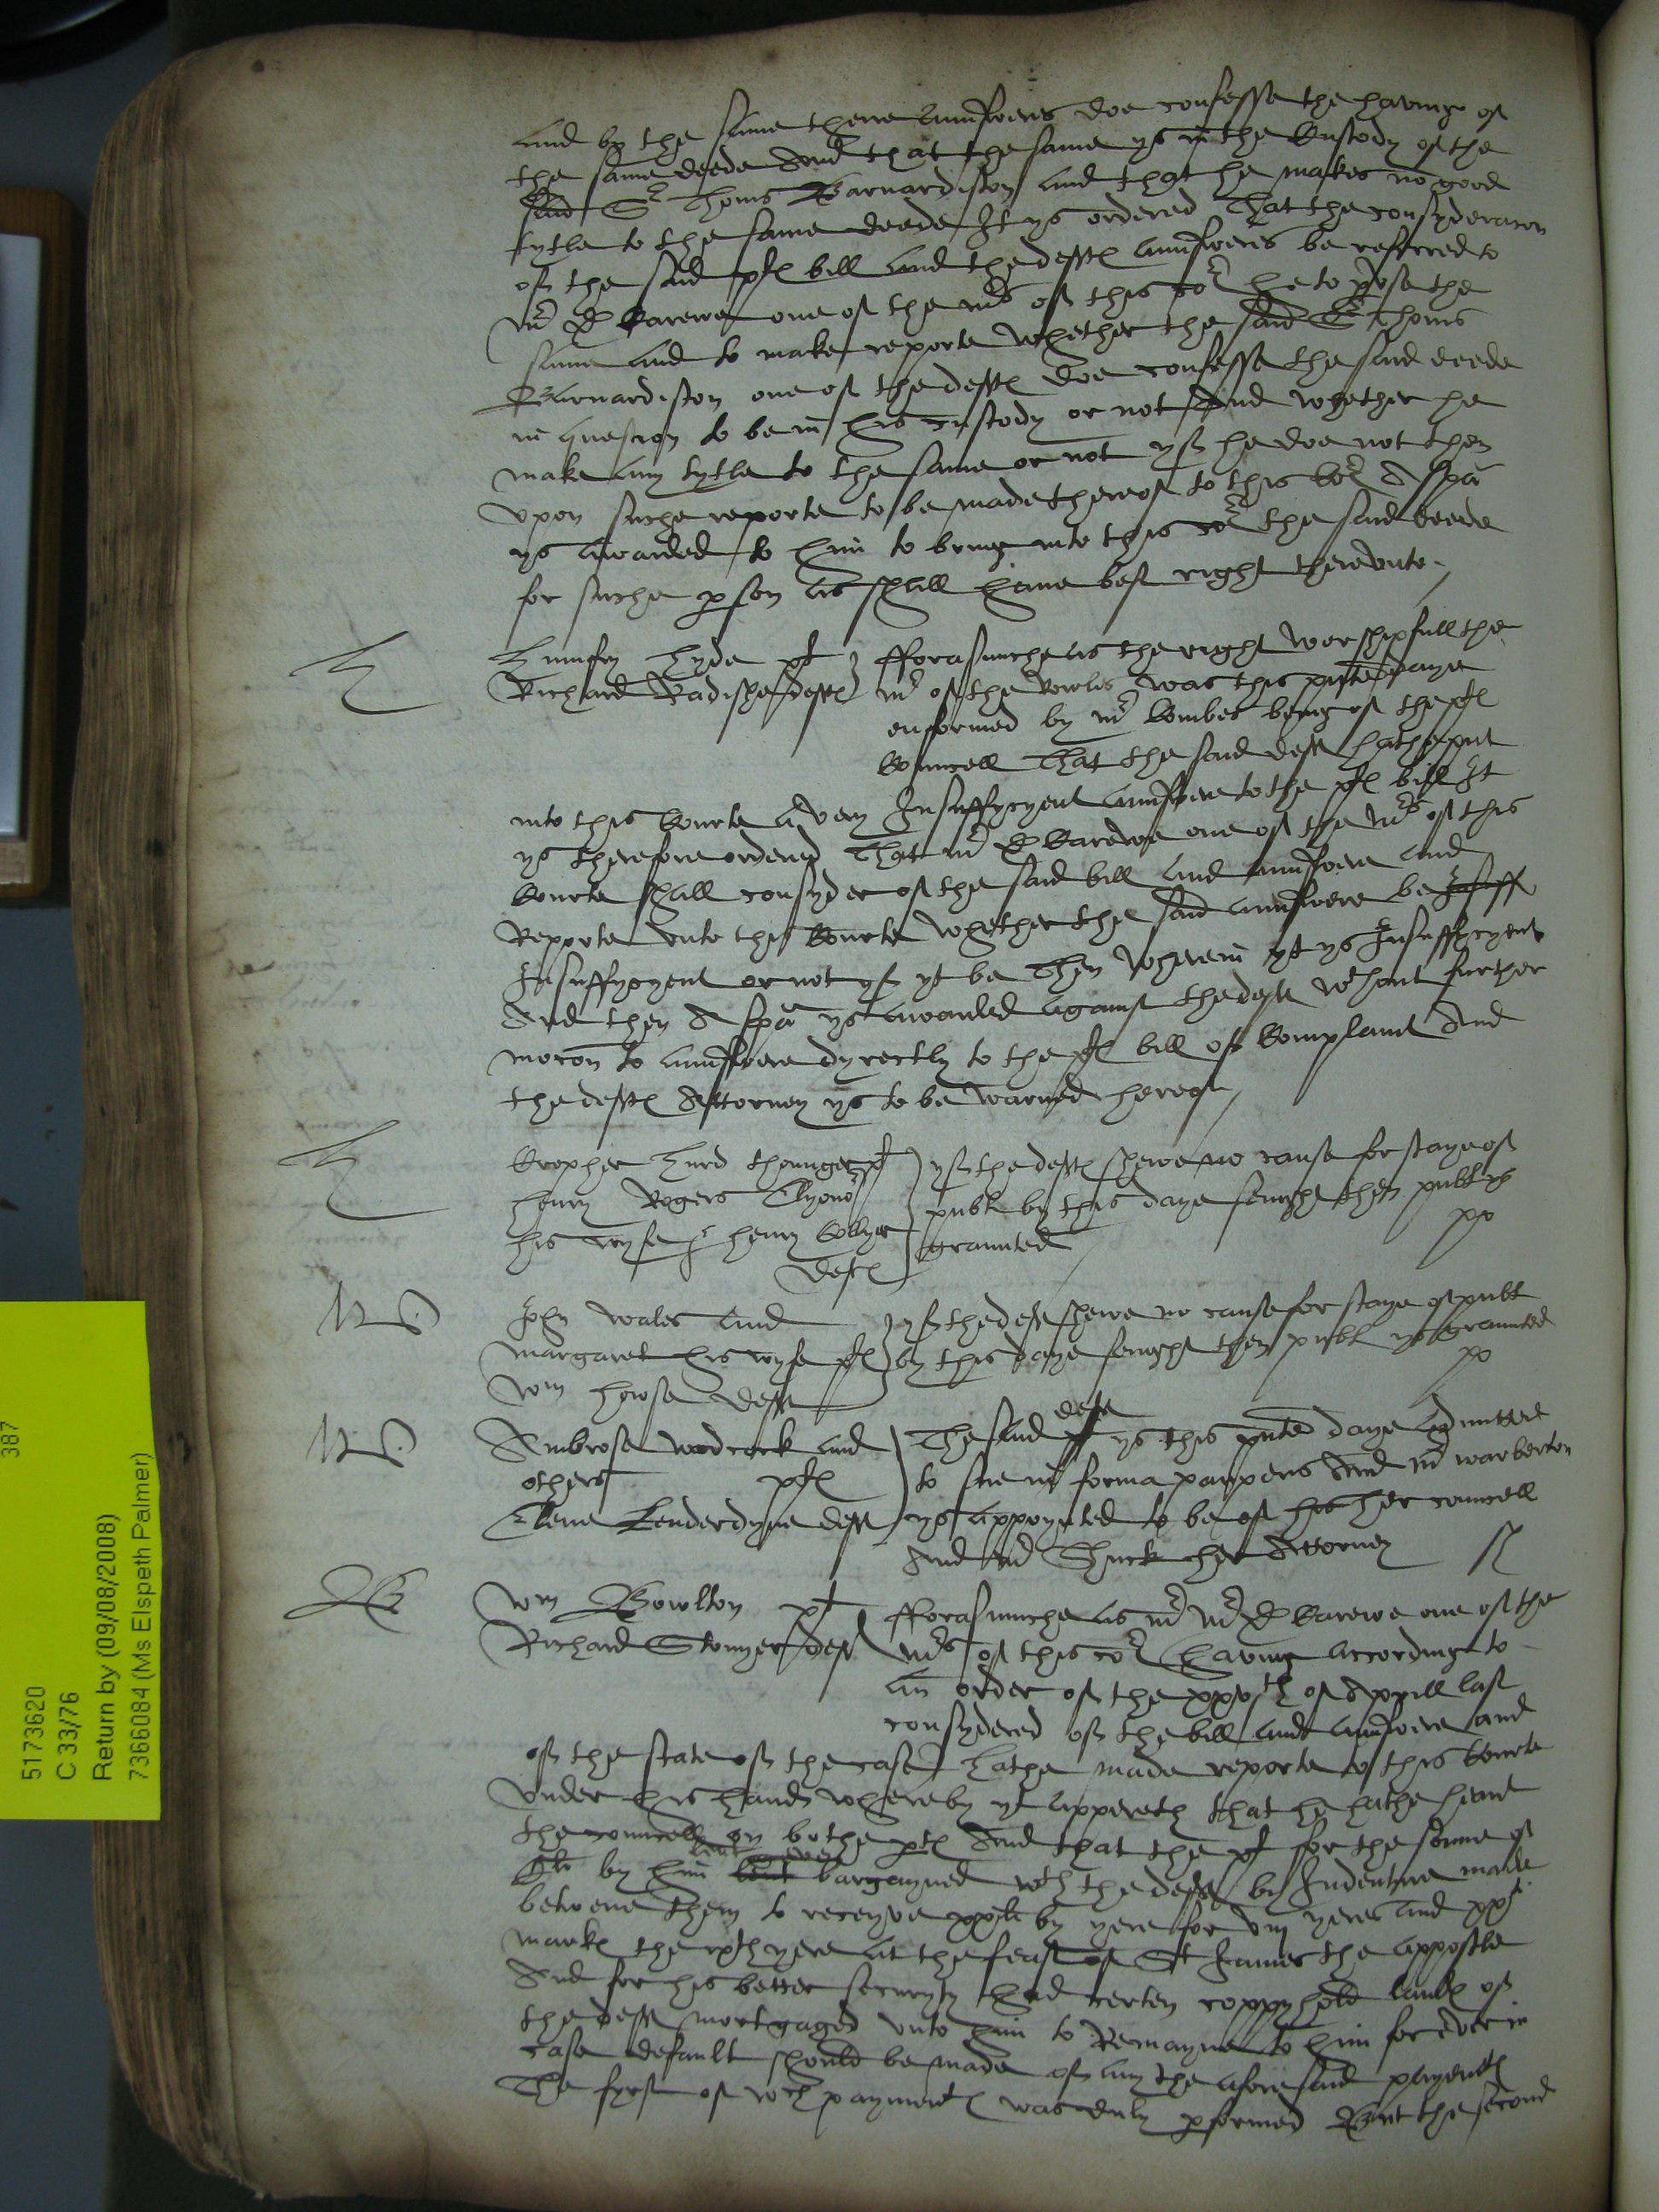 and by the same theire aunsweres doe confesse the having of
the same deede And that the same ys in the Custody of the
said Sr Thoms Barnardiston and that he makes no good
tytle to the same deede It ys ordered That the consyderacon
of the said pltes bill and the deftes aunsweres be referred to
Mr D Carewe one of the Mrs of this cort he to pvse the
same and to make reporte whether the said Sr Thoms
Barnardiston one of the deftes doe confesse the said deede
in question to be in his custody or not And whether he
make any tytle to the same or not yf he doe not then
vpon suche reporte to be made thereof to this Cort A spa
ys awarded to him to bring into this cort the said deede
for suche pson as shall have best right therevnto
Humfry Hyde plt
Richard Radishe deft
fforasmuche as the right worshipfull the
Mr of the Rowles was this pnte daye
enformed by Mr Combes being of the pltes
Councell That the said deft hathe put
into this Courte a very Insuffycyent aunswere to the pltes bill It
ys therefore ordered That Mr D Carewe one of the Mrs of this
Courte shall consyder of the said bill and aunswere and
Reporte vnto this Courte whether the said aunswere be Insuff
Insuffycyent or not yf yt be Then wherein yt ys Insuffycyent
And then A spa ys awarded against the deft wthout further
mocon to aunswere dyrectly to the pltes bill of Complaint And
the deftes Attorney ys to be warned hereof
Xpopher Hurd thounger plt
Henry Rogers Elyonor
his wyfe & Henry Collyer
deftes
yf the deftes shewe no cause for staye of
publ by this daye senight then publ ys
graunted
pp
John Wales and
Margaret his wyfe pltes
Wm Howse deft
yf the deft shewe no cause for staye of publ
by this daye senight then publ ys graunted
pp
Ambrose Wodcock and
others pltes
Elene Lenderdyne deft
deft
The said plt ys this pnte daye admitted
to sue in forma pauperis And Mr Warberton
ys appoynted to be of his her councell
And Mr Shuck her Attorney
Wm Bowlton plt
Richard Stonyer deft
fforasmuche as Mr Mr D Carewe one of the
Mrs of this cort having according to
an order of the xxvth of Aprill last
consydered of the bill and aunswere and
of the state of the case Hathe made reporte to this Courte
vnder his hand whereby yt appereth that he hathe heard
the councell on bothe ptes And that the plt for the some of
lent
by him lent bargayned wth the deft by Indenture made
betwene them to receyve by yere for viij yeres and
markes the ixth yere at the feast of St James the appostle
And for his better securyty had certen coppyhold landes of
the deft mortgaged vnto him to Remayne to him for ever in
case default should be made of any the aforesaid paymentes
The fyrst of wch paymentes was duly pformed But the second
5173620 387
C 33/76
Return by (09/08/2008)
7366084 (Ms Elspeth Palmer)